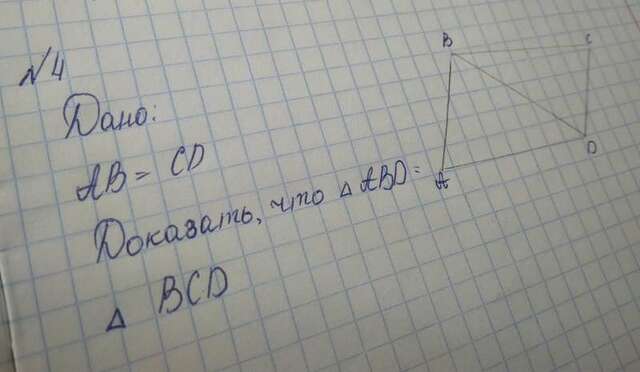 №4
Дано:
AB = CD
Доказать, что △ ABD =
△ BCD
B
C
A
D